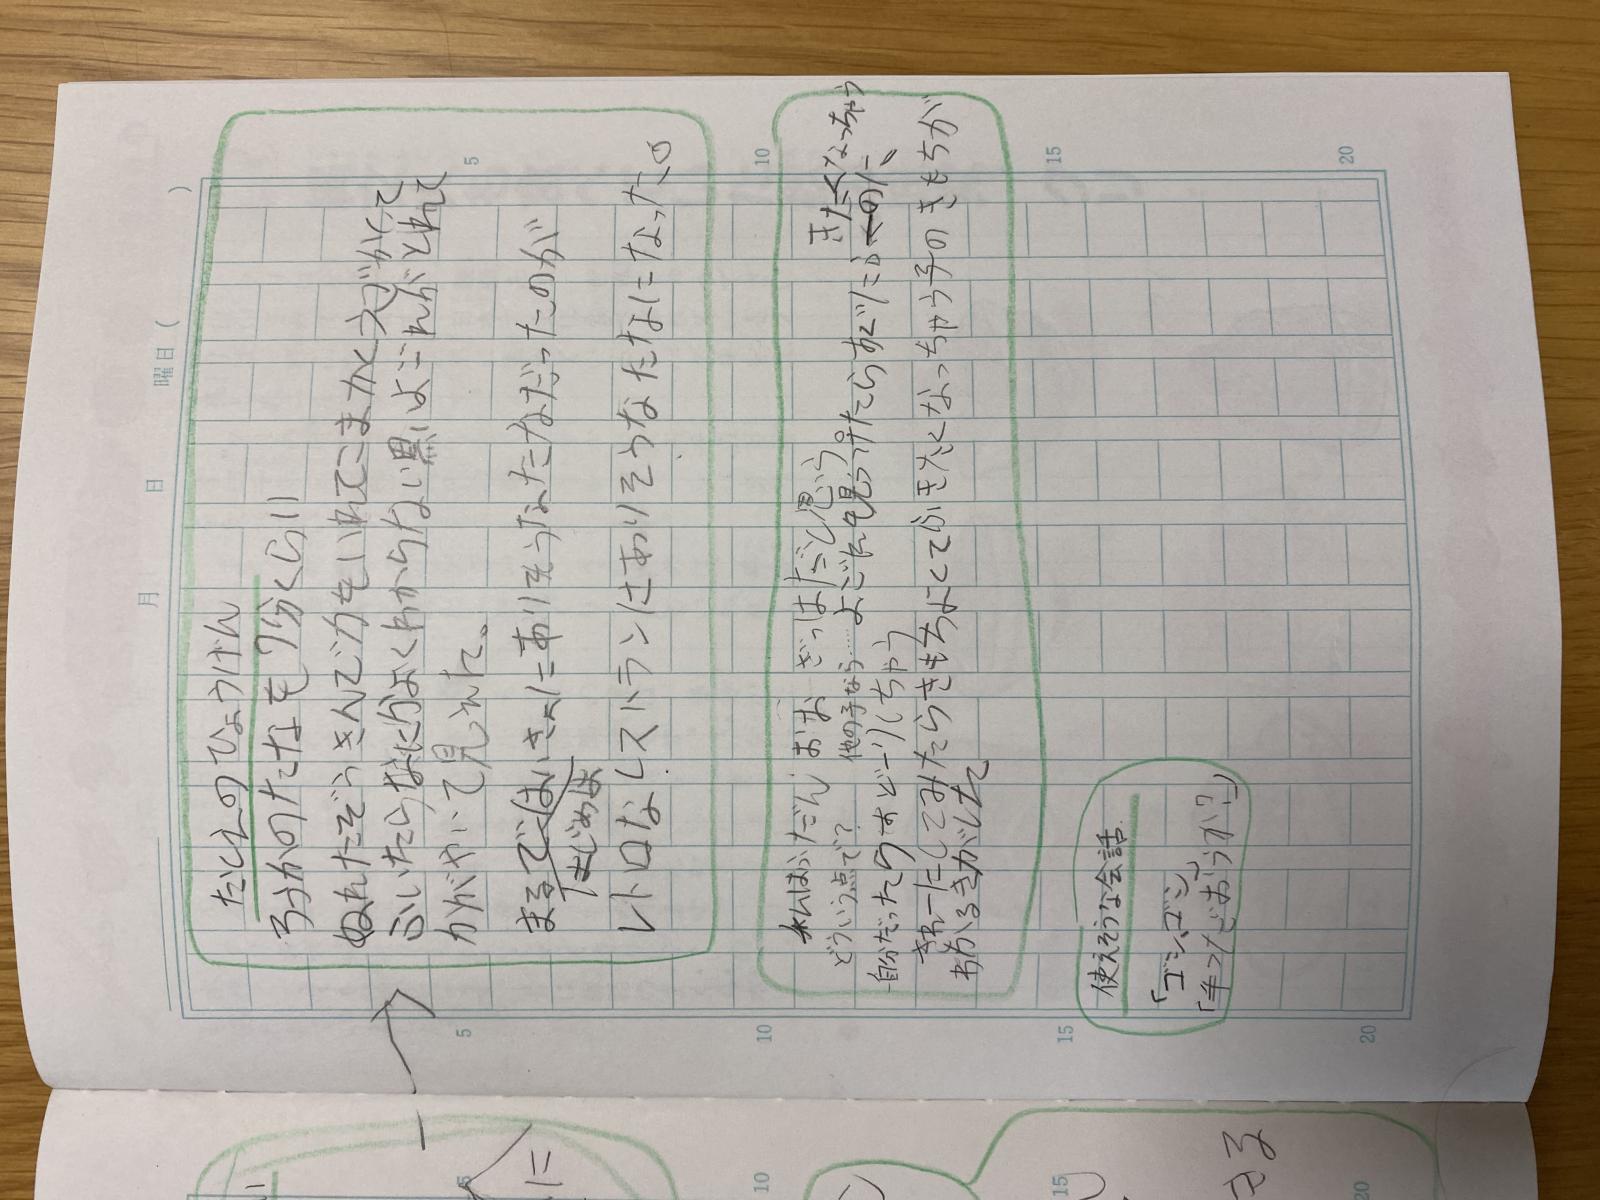 たとえのひょうげん
ろうかのたなを7分くらい
ぬれたぞうきんで力をいれてこまかくスヴかくて
ふいたらなにかよくわからない黒いよごれがとれて
かがやいて見えた。
まるではいきょにありそうなたなだったのが
はじめは
レトロなレストランにありそうなたなになった。
れんはふだん、おお ざっぱだと思いう
どういう点で?
他の子なら……よごれを見つけたらすぐにふくのに、
きたくなっちゃう
自分だったらすどーりしちゃう
きれーにしてみたらきもちよくてふきたくなっちゃう子のきもちが
わかるきがした
使えそうな会話
「ゴシゴシ」
「手つだおうか?」
月 日 曜日( )
5
10
15
20
5
10
15
20
に
きる
10
15
20